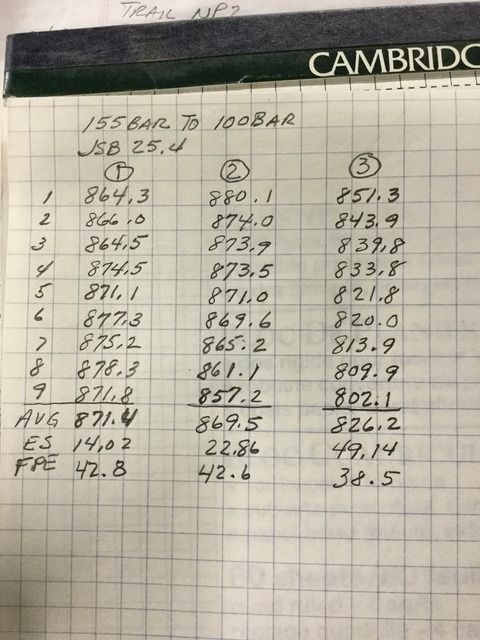 TRAIL NP?
CAMBRIDG
155BAR TO 100BAR
JSB 25.4
① ② ③
1 864.3 880.1 851.3
2 866.0 874.0 843.9
3 864.5 873.9 839.8
4 874.5 873.5 833.8
5 871.1 871.0 821.8
6 877.3 869.6 820.0
7 875.2 865.2 813.9
8 878.3 861.1 809.9
9 871.8 857.2 802.1
AVG 871.4 869.5 826.2
ES 14.02 22.86 49.14
FPE 42.8 42.6 38.5